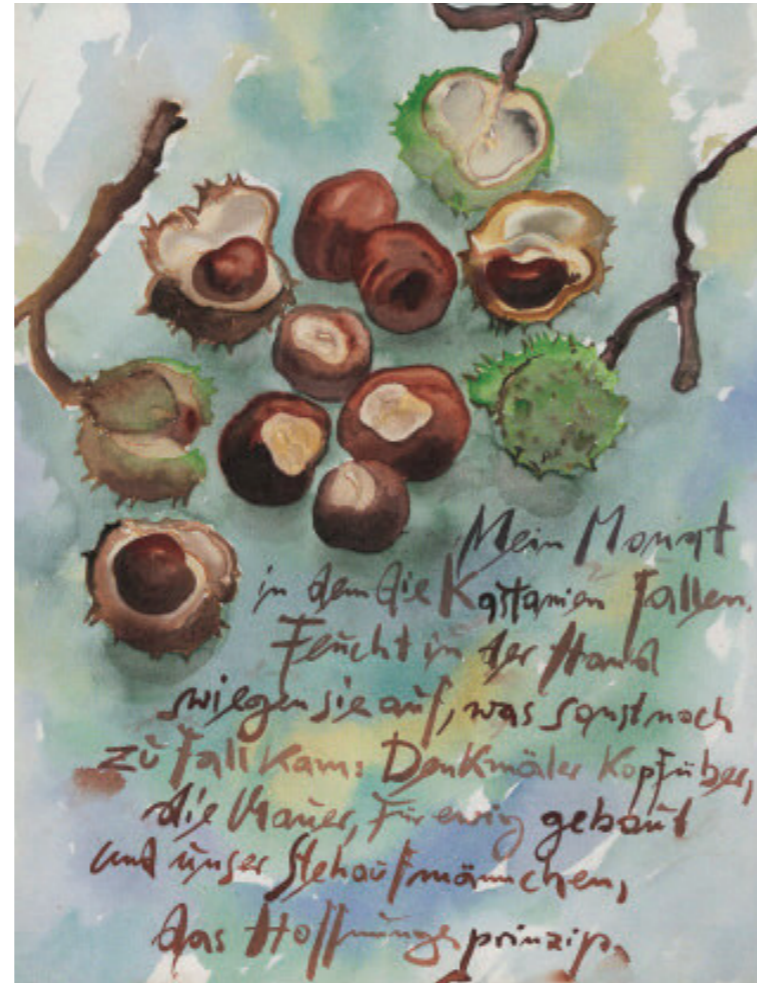 Mein Monat
in dem die Kastanien fallen.
Feucht in der Hand
wiegen sie auf, was sonst noch
zu Fall kam: Denkmäler kopfüber,
die Mauer, für ewig gebaut
und unser Stehaufmännchen,
das Hoffnungsprinzip.